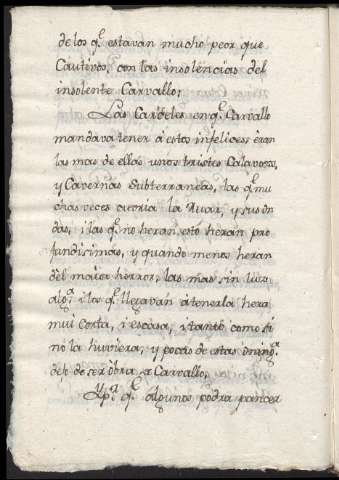 de los q.ᵉ estavan mucho peor que
Cautivos, con las insolencias del
insolente Carvallo;
Las Carzeles en q.ᵉ Carvallo
mandava tener á estos infelices, eran
las mas de ellas unos tristes Calavosos,
y Cavernas Subterraneas, las q.ᵉ mu
chas veces cubria la Mar, y sus on
das, i las q.ᵉ no heran esto heran pro
fundisimas, y quando menos heran
del maior horror, las mas sin luz
alg.ᵃ i los q.ᵉ llegavan á tenerla hera
mui corta, i escasa, i tanto como si
no la huviera; y pocas de estas
deb de ser obra, a Carvallo,
Y p.ᵃ q.ᵉ algunos podra parecer